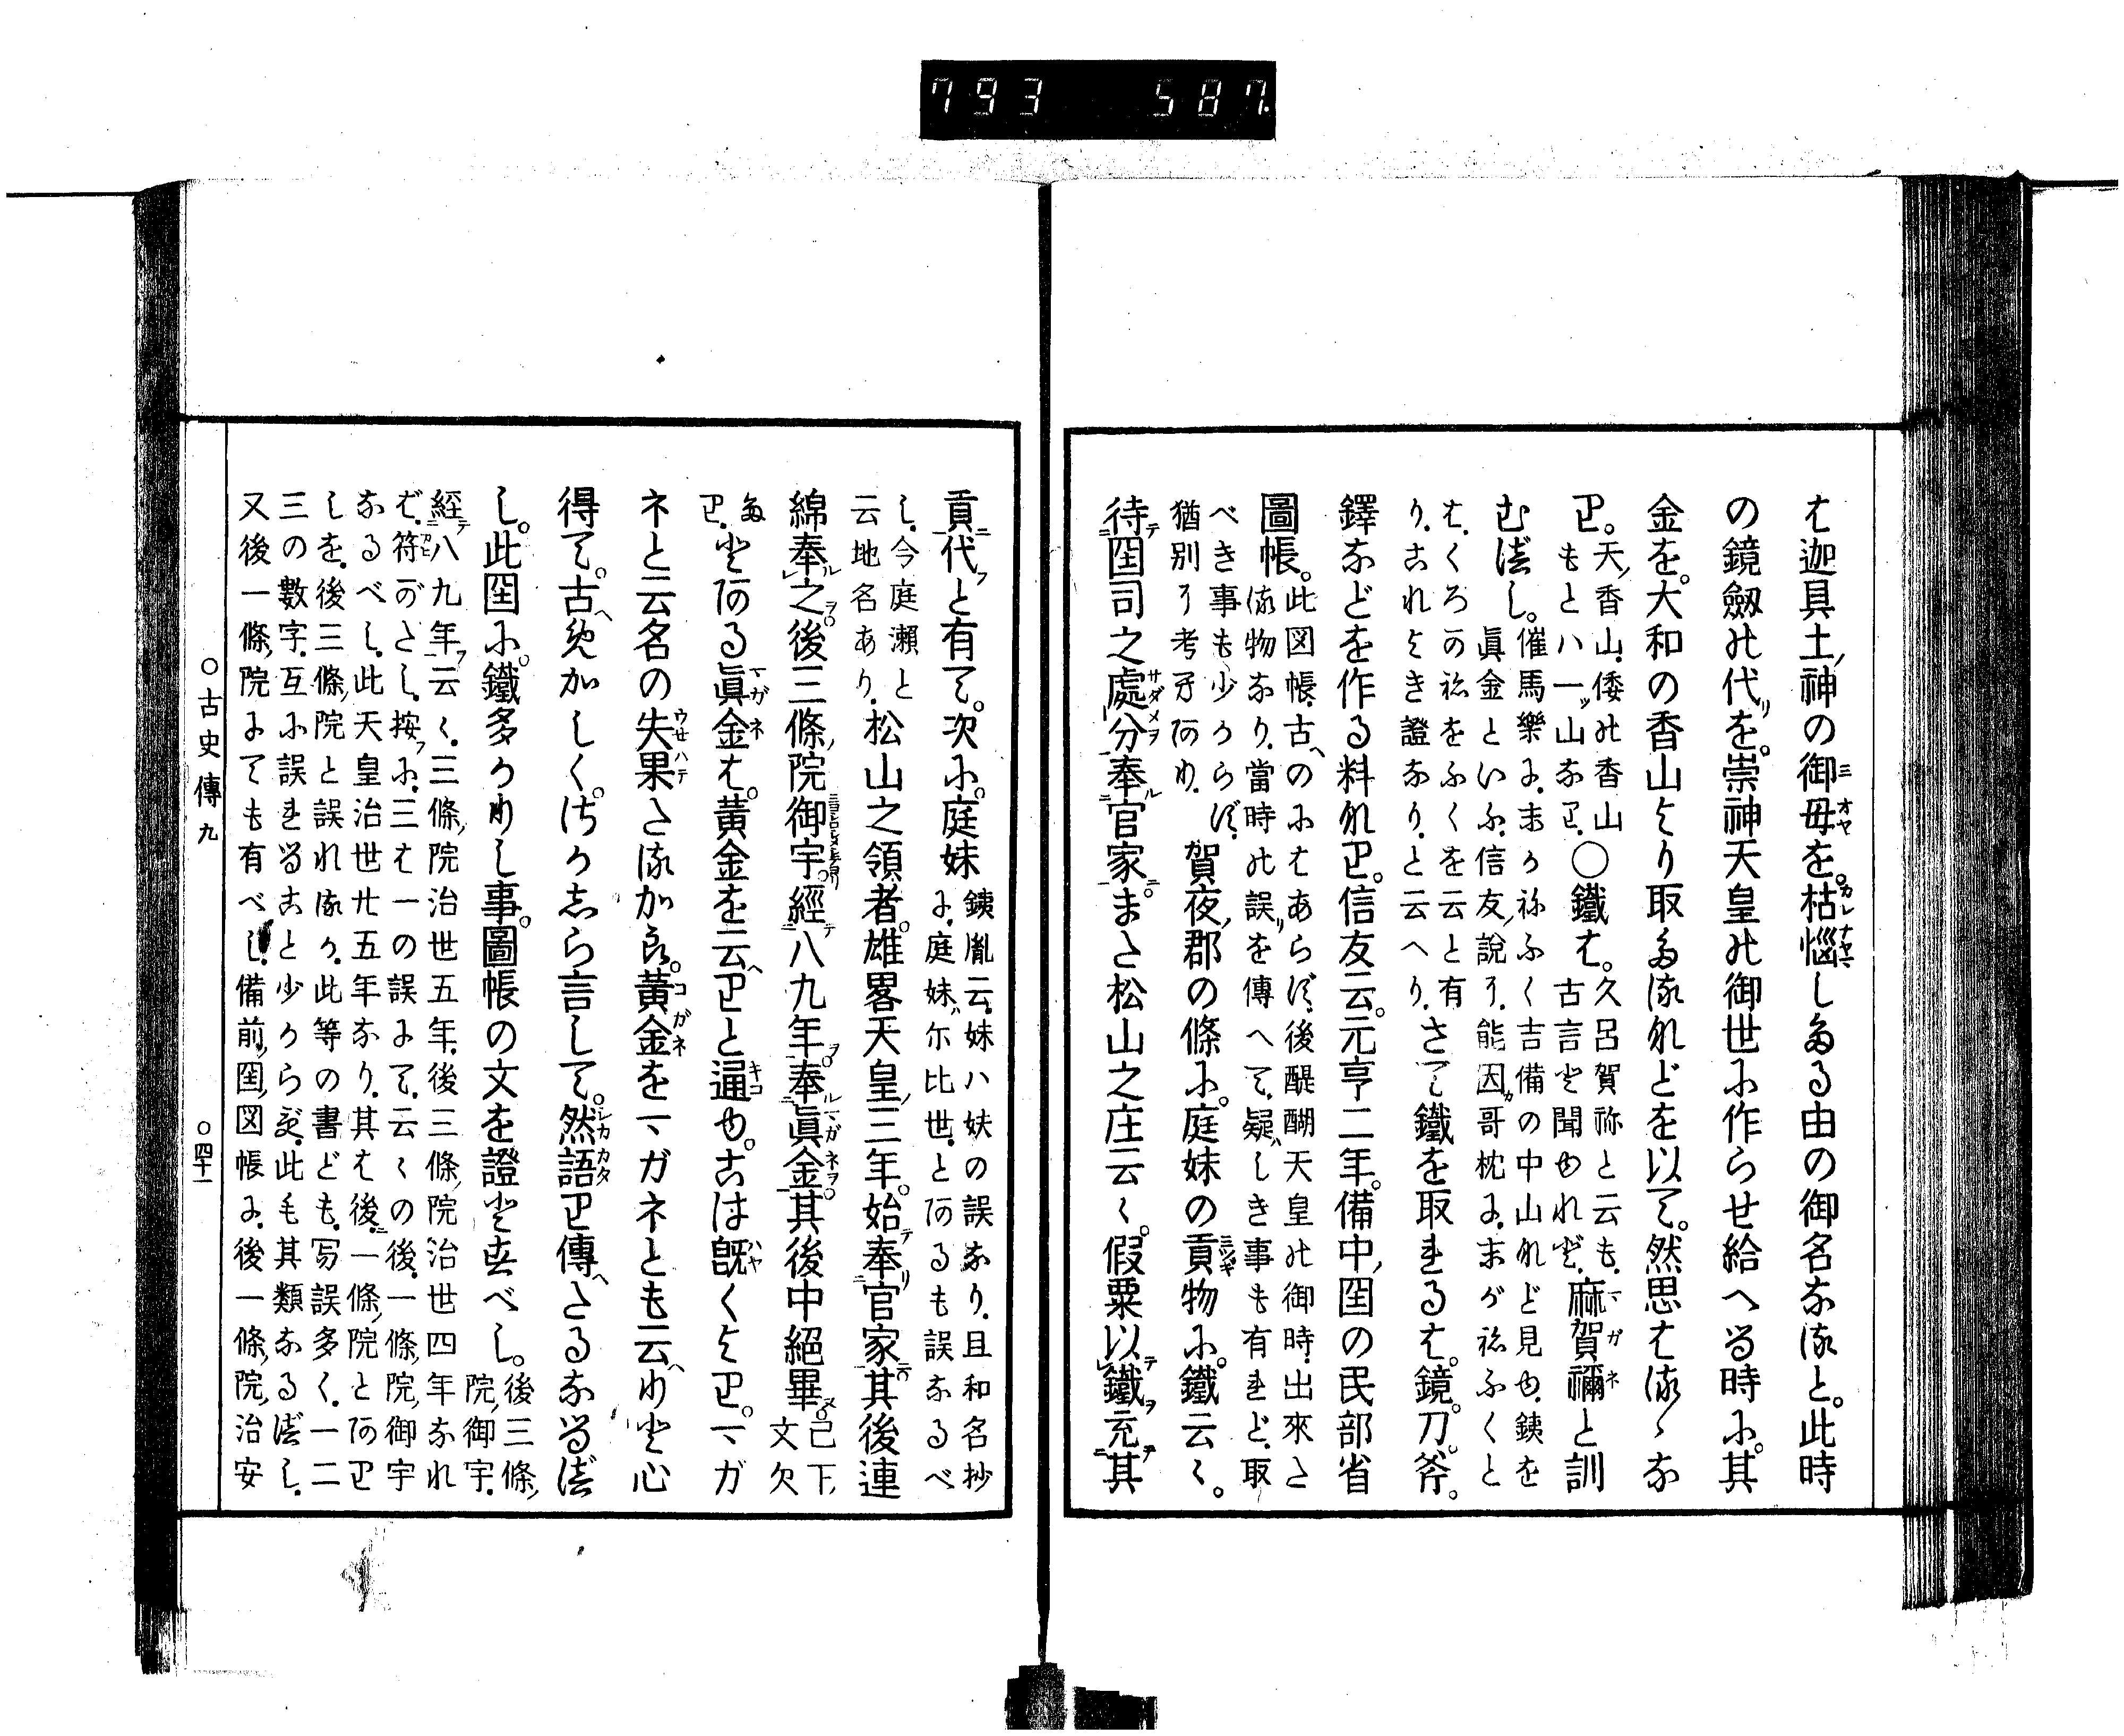 793 587
は迦具土ノ神の御母を。枯惱しめる由の御名なると。此時
の鏡劔の代を。崇神天皇の御世に作らせ給へる時に。其
金を。大和の香山より取たるなどを以て。然思はるゝな
り。天ノ香山、倭の香山
もとハ一ッ山なり。〇鐵は。久呂賀祢と云も、
古言と聞ゆれど、麻賀禰と訓
むべし。催馬樂に、まかねふく吉備の中山など見ゆ、銕を
眞金といふ、信友ノ説に、能因哥枕に、まがねふくと
は、くろかねをふくを云と有
り、これよき證なり、と云へり、さて鐵を取れるは。鏡。刀。斧。
鐸などを作る料なり。信友云。元亨二年。備中ノ国の民部省
圖帳。此図帳、古のにはあらず、後醍醐天皇の御時、出來た
る物なり、當時の誤を傳へて、疑しき事も有れど、取
べき事も少からず、
猶別に考あり、賀夜ノ郡の條に。庭妹の貢物に。鐵云々。
待国司之處分奉官家。また松山之庄云々。假粟以鐵充其
貢代と有て。次に。庭妹銕胤云、妹ハ妖の誤なり、且和名抄
に、庭妹尓比世、とあるも誤なるべ
し、今庭瀬と
云地名あり、松山之領者。雄畧天皇ノ三年。始奉官家其後連
綿奉之後三條ノ院御宇。經八九年奉眞金。其後中絕畢已下ノ
文欠
たり、とある眞金は。黃金を云へりと通ゆ。古は既くより。マガ
ネと云名の失果たるから。黃金をマガネとも云へりと心
得て。古めかしく。さかしら言して。然語り傳へたるなるべ
し。此国に。鐵多かりし事。圖帳の文を證とすべし。後三條ノ
院ノ御宇、
經八九年云々、三條ノ院治世五年、後三條ノ院治世四年なれ
ば、符がたし、按に、三は一の誤にて、云々の後、一條ノ院ノ御宇
なるべし、此天皇治世廿五年なり、其は後ニ一條ノ院とあり
しを、後三條ノ院と誤れるか、此等の書ども、写誤多く、一二
三の數字、互に誤れること少からず、此も其類なるべし、
又後一條ノ院にても有べし、備前ノ国ノ図帳に、後一條ノ院ノ治安
〇古史傳九
〇四十一